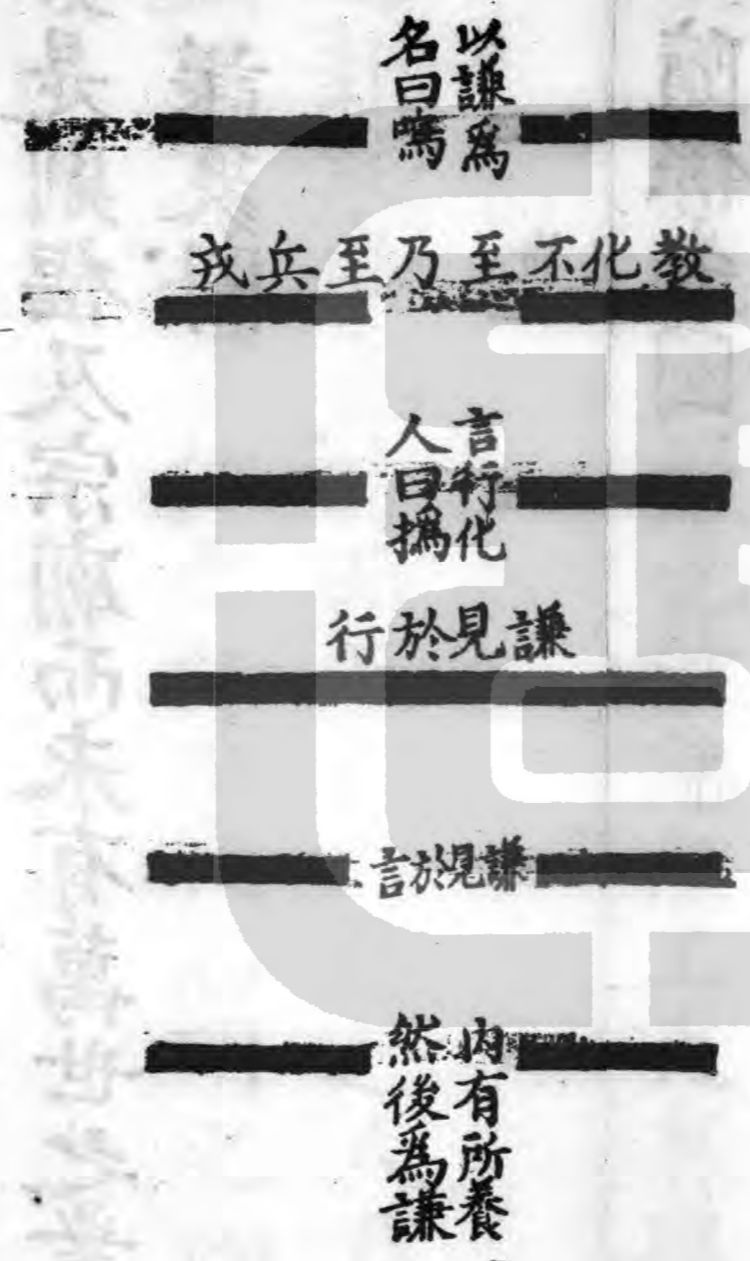 以謙爲
名曰鳴
教化不至乃至兵戎
言行化
人曰撝
謙見於行
謙見於言
內有所養
然後爲謙